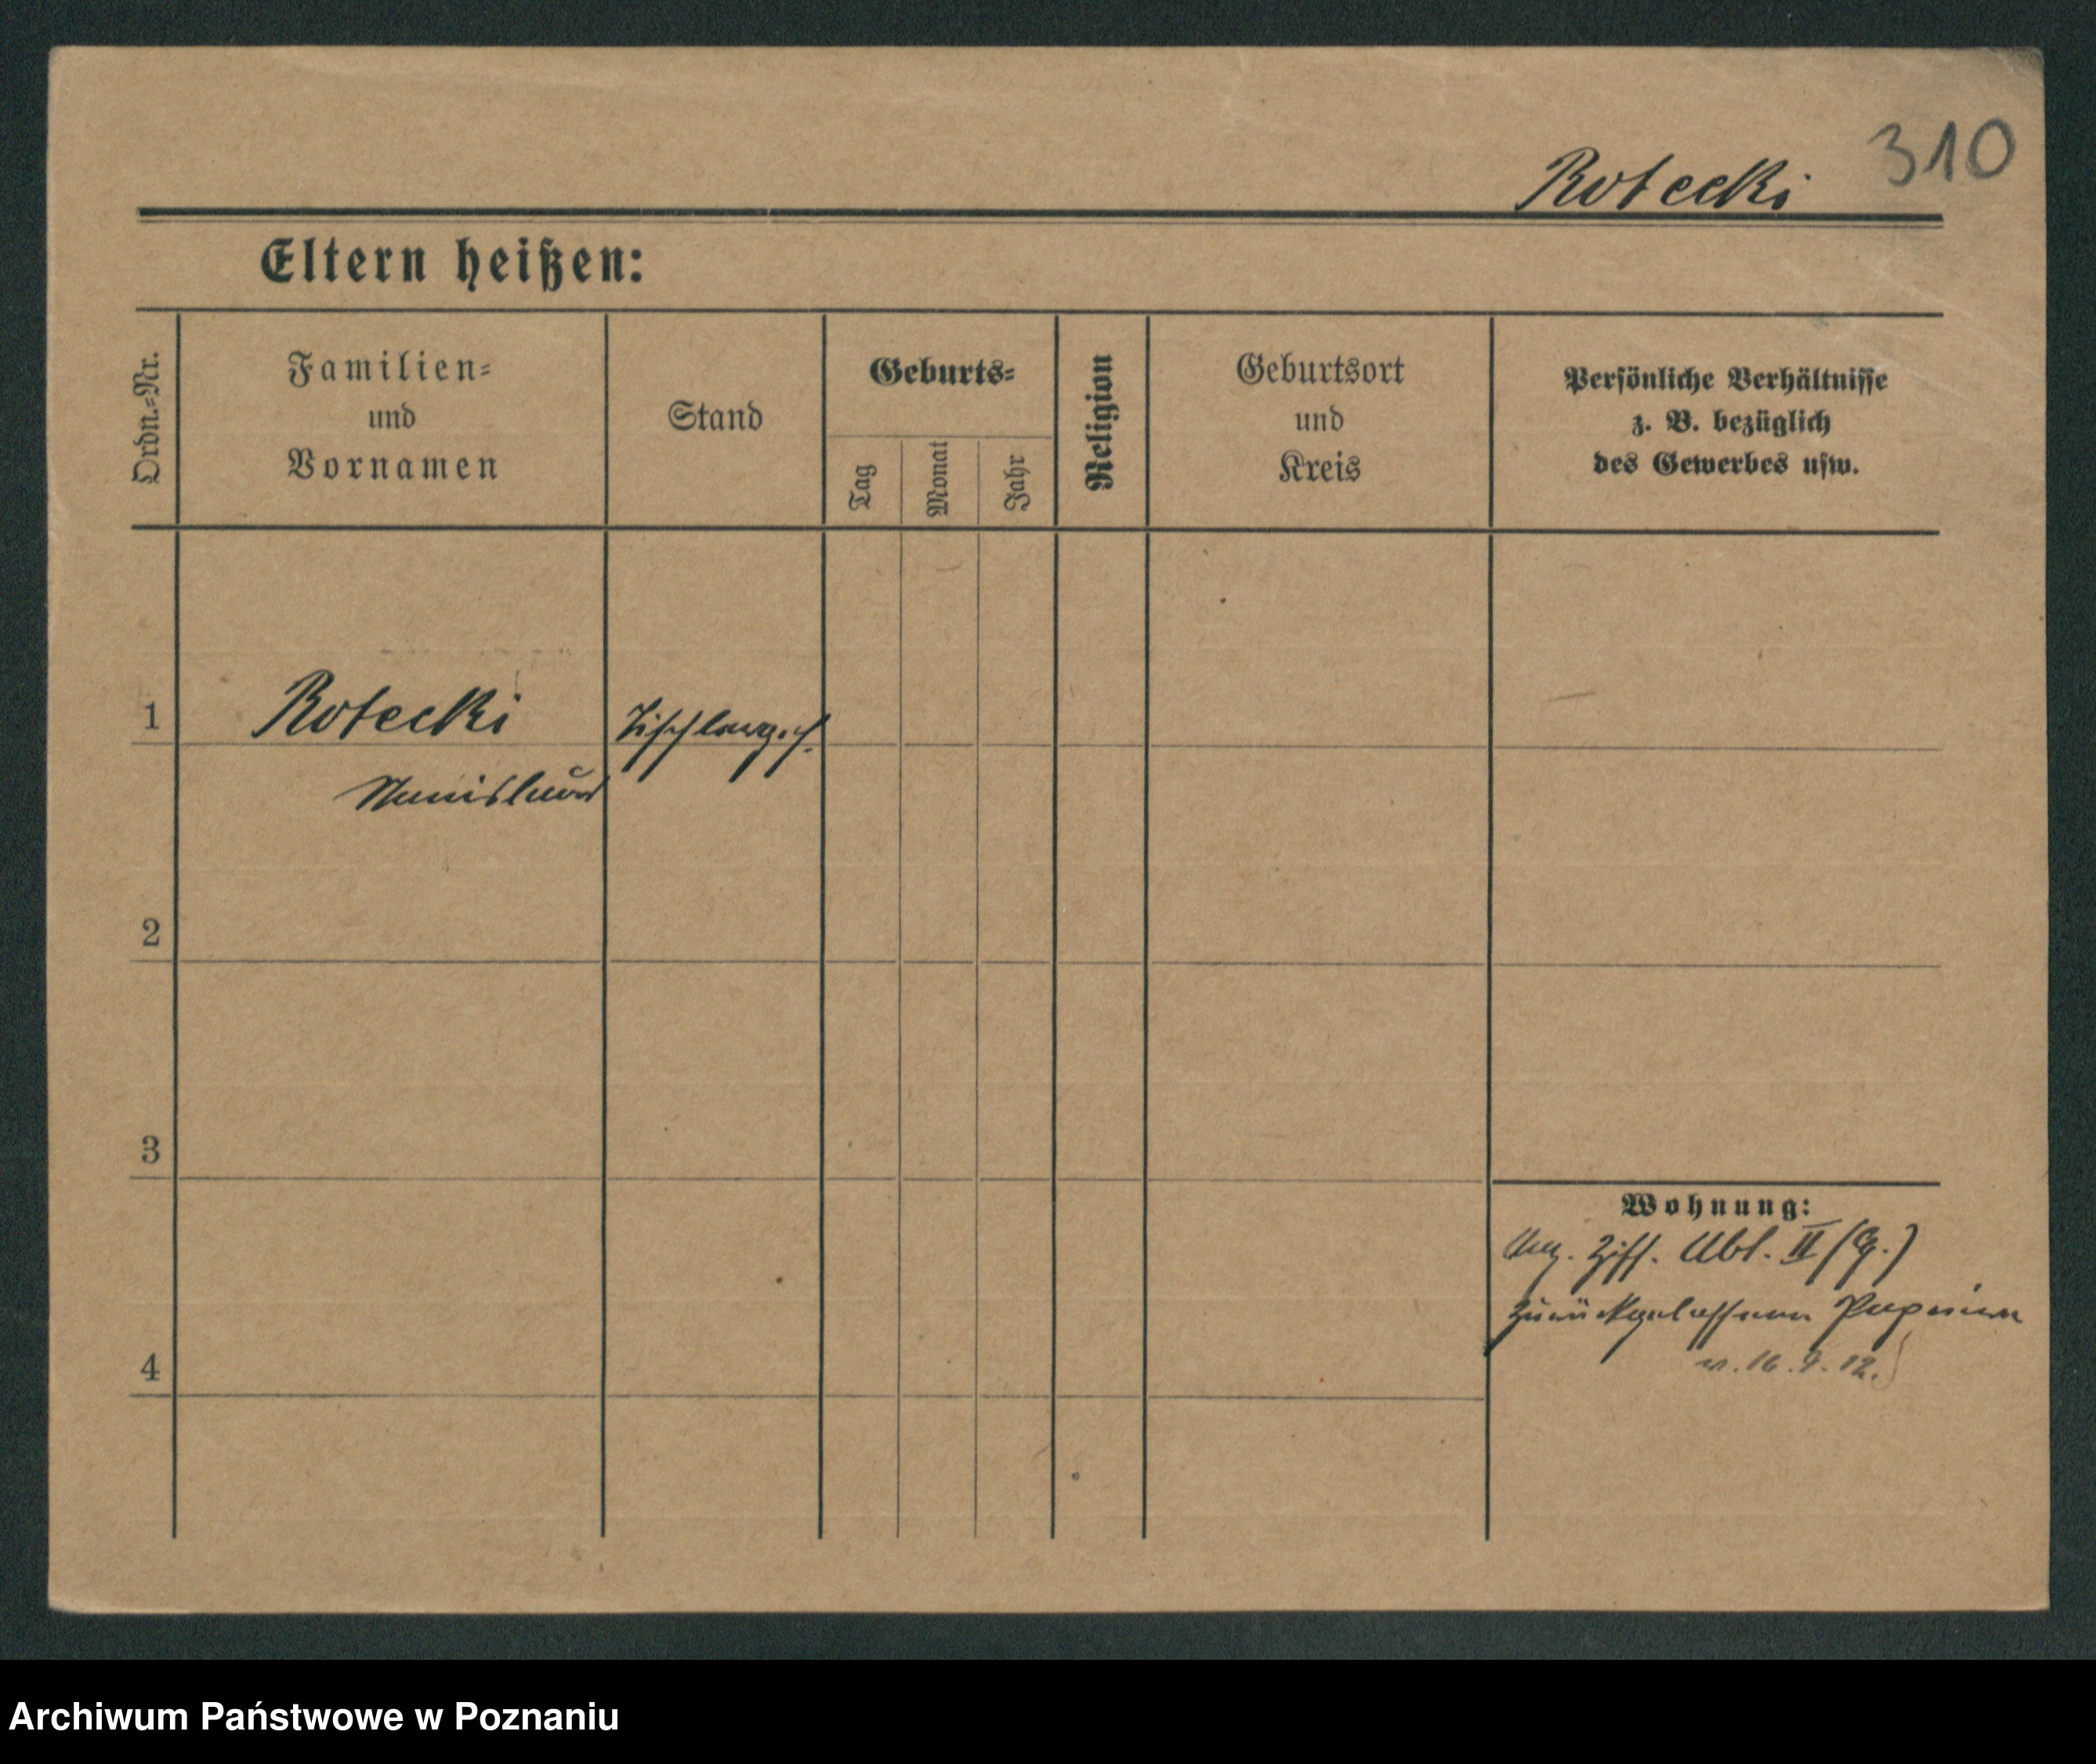 310
Rotecki
Eltern heißen:
Ordn.=Nr.
Familien=
und
Vornamen
Stand
Geburts=
Tag
Monat
Jahr
Religion
Geburtsort
und
Kreis
Persönliche Verhältnisse
z. B. bezüglich
des Gewerbes usw.
1
Rotecki
Tischlerges.
Stanislaus
2
3
4
Wohnung:
Ziff. Abt. II (G.)
zurückgelassenen Papieren
v. 16. 9. 12.
Archiwum Państwowe w Poznaniu